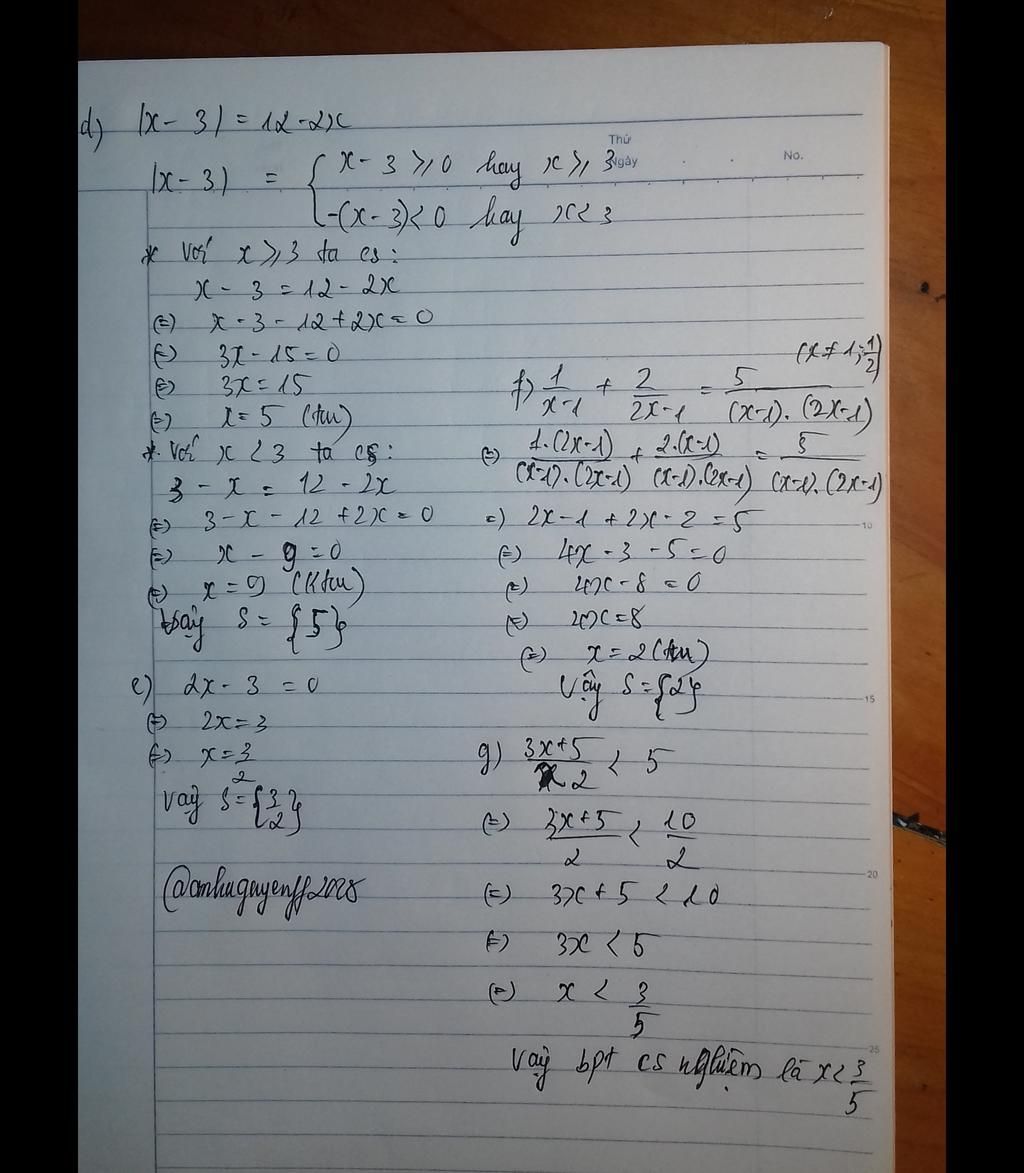 Thứ
Ngày
No.
d) |x - 3| = 12 - 2x
|x - 3| = { x - 3 ⩾ 0 hay x ⩾ 3
-(x - 3) < 0 hay x < 3
* Với x ⩾ 3 ta có:
x - 3 = 12 - 2x
(=) x - 3 - 12 + 2x = 0
(=) 3x - 15 = 0
(=) 3x = 15
(=) x = 5 (tm)
* Với x < 3 ta có:
3 - x = 12 - 2x
(=) 3 - x - 12 + 2x = 0
(=) x - 9 = 0
(=) x = 9 (Ktm)
Vậy S = {5}
e) 2x - 3 = 0
(=) 2x = 3
(=) x = 3/2
Vậy S = {3/2}
@anhnguyenff2028
(x ≠ 1; 1/2)
f) 1/(x-1) + 2/(2x-1) = 5/((x-1).(2x-1))
(=) 1.(2x-1)/((x-1).(2x-1)) + 2.(x-1)/((x-1).(2x-1)) = 5/((x-1).(2x-1))
=) 2x - 1 + 2x - 2 = 5
(=) 4x - 3 - 5 = 0
(=) 4x - 8 = 0
(=) 4x = 8
(=) x = 2 (tm)
Vậy S = {2}
g) (3x+5)/2 < 5
(=) (3x+5)/2 < 10/2
(=) 3x + 5 < 10
(=) 3x < 5
(=) x < 3/5
Vậy bpt có nghiệm là x < 3/5
10
15
20
25